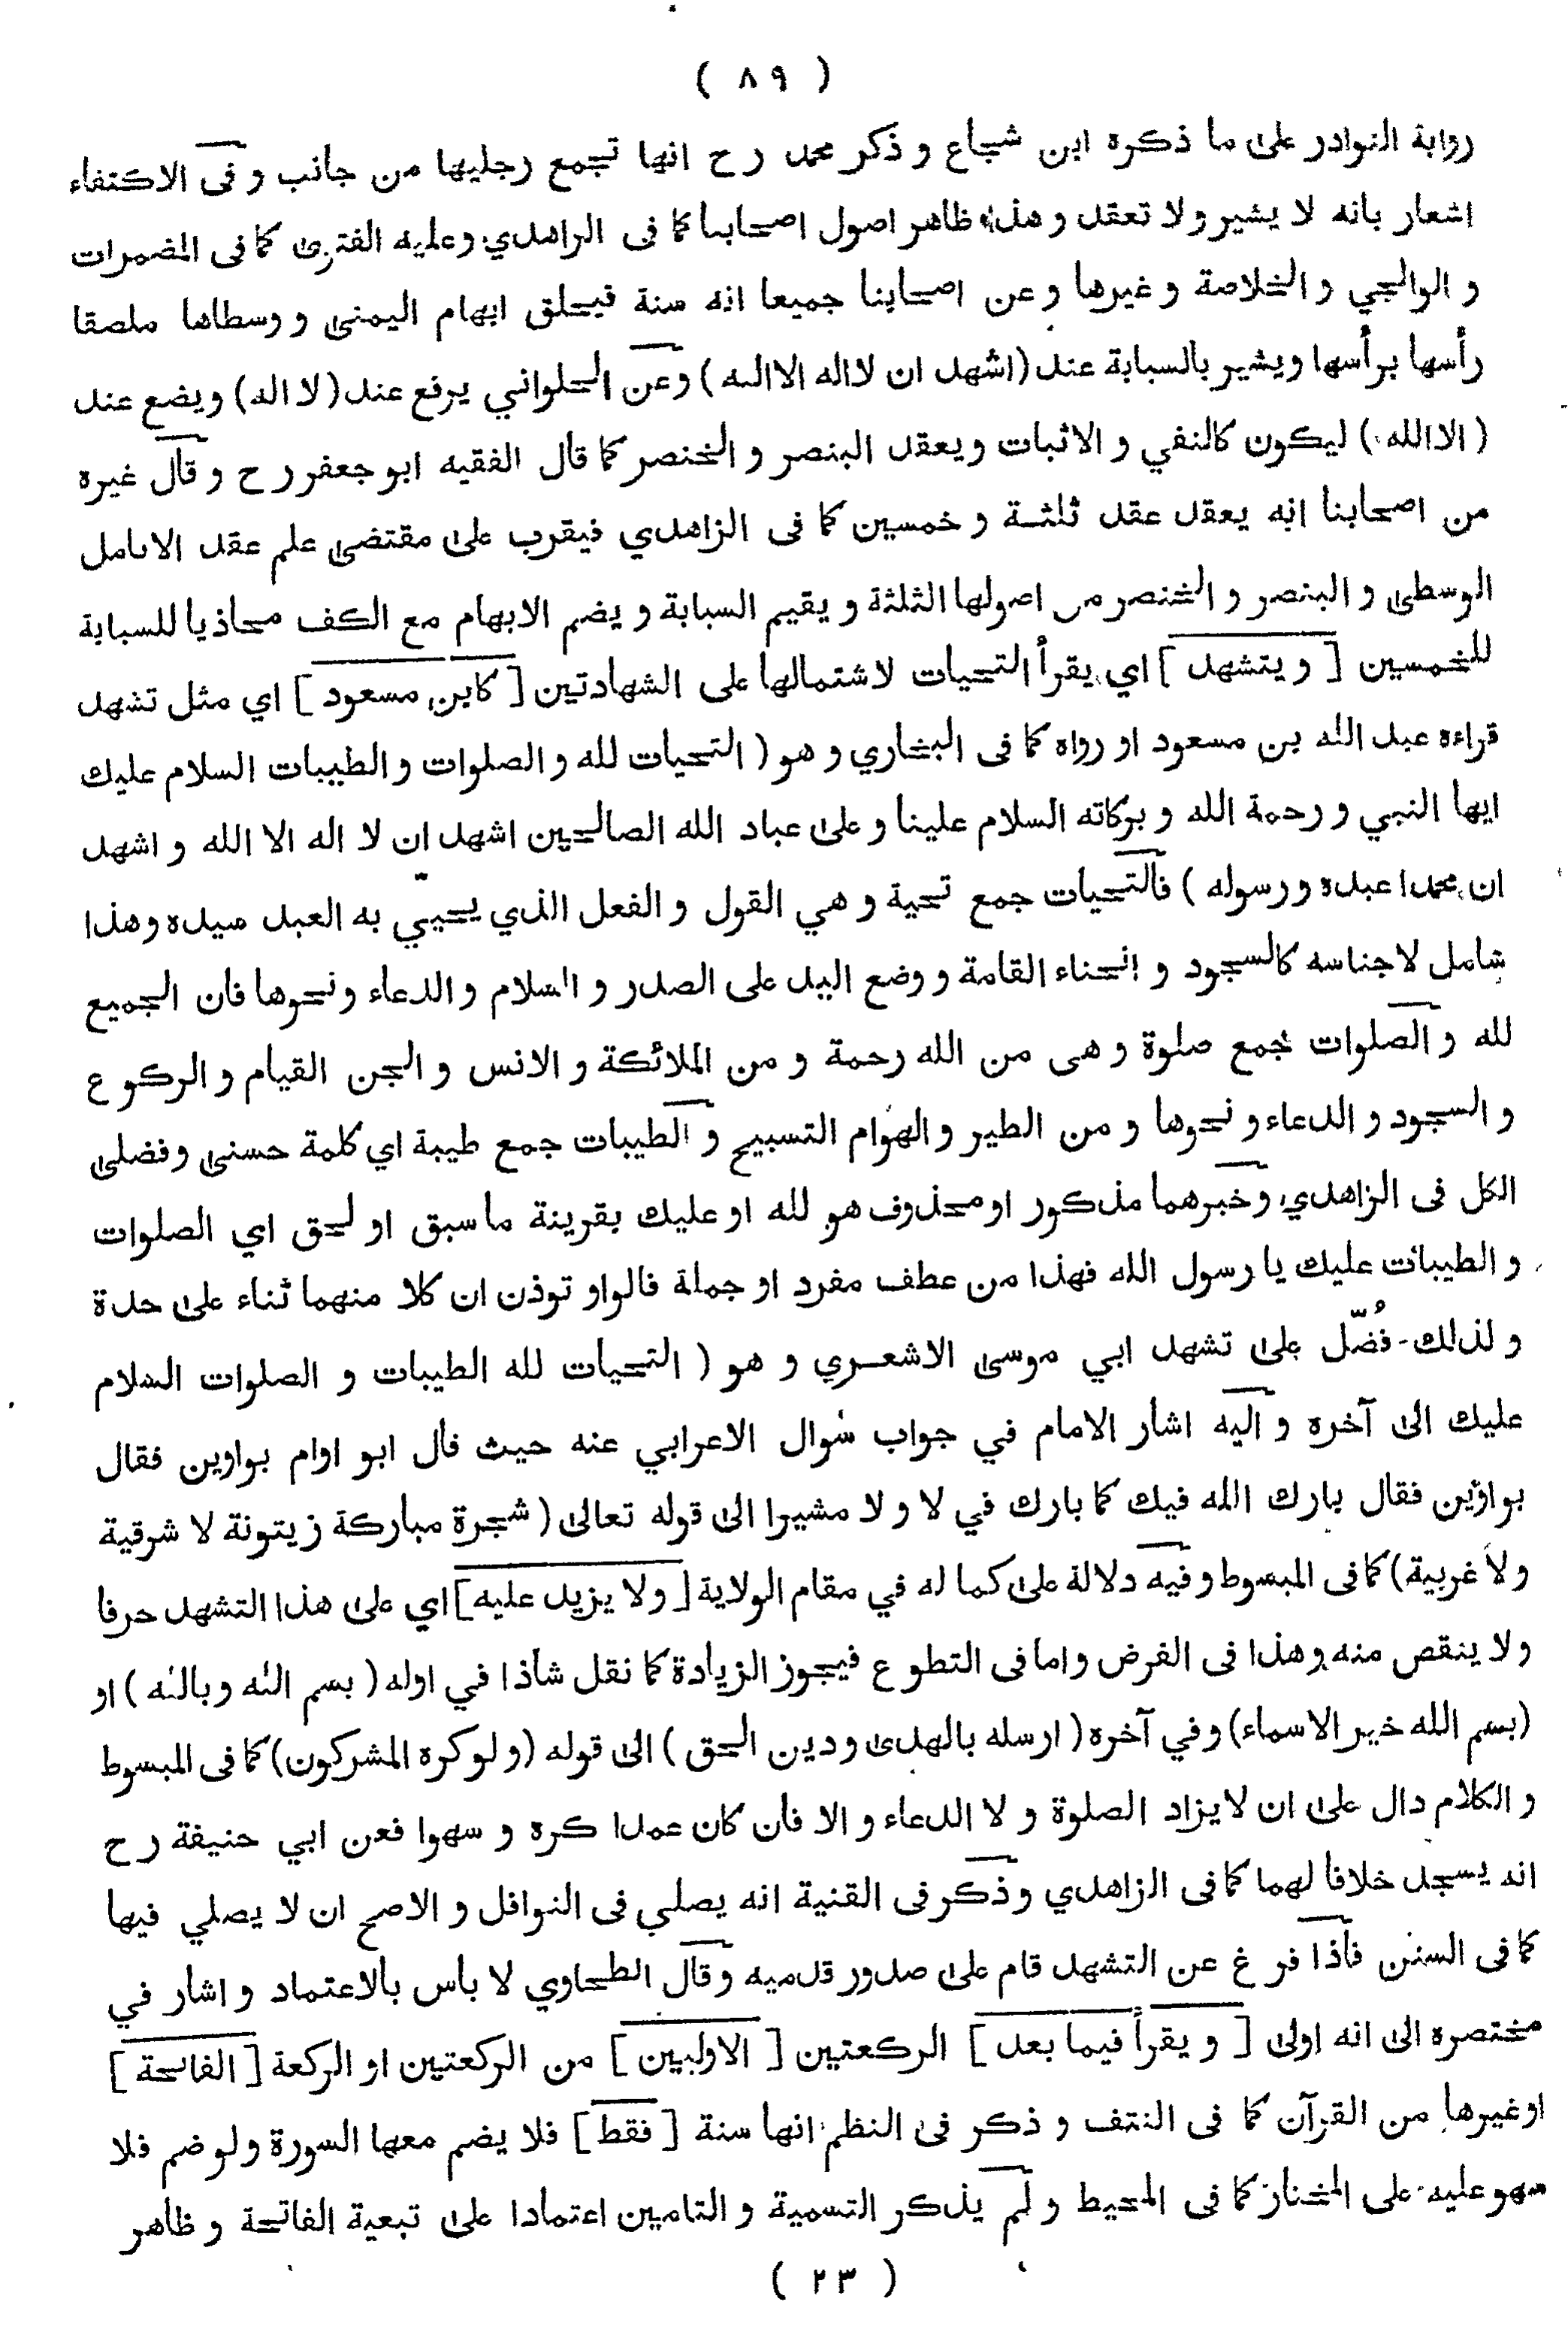 ( ٨٩ )
رواية النوادر على ما ذكره ابن شجاع و ذكر محمد رح انها تجمع رجليها من جانب و فى الاكتفاء
اشعار بانه لا يشير و لا تعقد و هذا ظاهر اصول اصحابنا كما فى الزاهدي و عليه الفتوى كما فى المضمرات
و الوالجي و الخلاصة و غيرها و عن اصحابنا جميعا انه سنة فيحلق ابهام اليمنى و وسطاها ملصقا
رأسها برأسها و يشير بالسبابة عند (اشهد ان لا اله الا الله ) وعن الحلواني يرفع عند ( لا اله ) ويضع عند
( الا الله ) ليكون كالنفي و الاثبات و يعقد البنصر و الخنصر كما قال الفقيه ابو جعفر رح و قال غيره
من اصحابنا انه يعقد عقد ثلثة و خمسين كما فى الزاهدي فيقرب على مقتضى علم عقد الانامل
الوسطى و البنصر و الخنصر من اصولها الثلثة و يقيم السبابة و يضم الابهام مع الكف محاذيا للسبابة
للخمسين [ و يتشهد ] اي يقرأ التحيات لاشتمالها على الشهادتين [ كابن مسعود ] اي مثل تشهد
قراءه عبد الله بن مسعود او رواه كما فى البخاري و هو ( التحيات لله و الصلوات و الطيبات السلام عليك
ايها النبي و رحمة الله و بركاته السلام علينا و على عباد الله الصالحين اشهد ان لا اله الا الله و اشهد
ان محمدا عبده و رسوله ) فالتحيات جمع تحية و هي القول و الفعل الذي يحيي به العبد سيده و هذا
شامل لاجناسه كالسجود و انحناء القامة و وضع اليد على الصدر و السلام و الدعاء و نحوها فان الجميع
لله و الصلوات جمع صلوة و هى من الله رحمة و من الملائكة و الانس و الجن القيام و الركوع
و السجود و الدعاء و نحوها و من الطير و الهوام التسبيح و الطيبات جمع طيبة اي كلمة حسنى و فضلى
الكل فى الزاهدي و خبرهما مذكور او محذوف هو لله او عليك بقرينة ما سبق او لحق اي الصلوات
و الطيبات عليك يا رسول الله فهذا من عطف مفرد او جملة فالواو توذن ان كلا منهما ثناء على حدة
و لذلك فُضّل على تشهد ابي موسى الاشعري و هو ( التحيات لله الطيبات و الصلوات السلام
عليك الى آخره و اليه اشار الامام في جواب سُوال الاعرابي عنه حيث قال ابو اوام بواوين فقال
بواوين فقال بارك الله فيك كما بارك في لا و لا مشيرا الى قوله تعالى ( شجرة مباركة زيتونة لا شرقية
ولا غربية ) كما فى المبسوط و فيه دلالة على كما له في مقام الولاية [ و لا يزيد عليه ] اي على هذا التشهد حرفا
ولا ينقص منه و هذا فى الفرض و اما فى التطوع فيجوز الزيادة كما نقل شاذا في اوله ( بسم الله و بالله ) او
(بسم الله خير الاسماء) و في آخره ( ارسله بالهدى و دين الحق ) الى قوله (و لو كره المشركون) كما فى المبسوط
و الكلام دال على ان لا يزاد الصلوة و لا الدعاء و الا فان كان عمدا كره و سهوا فعن ابي حنيفة رح
انه يسجد خلافا لهما كما فى الزاهدي و ذكر فى القنية انه يصلي فى النوافل و الاصح ان لا يصلي فيها
كما فى السنن فاذا فرغ عن التشهد قام على صدور قدميه و قال الطحاوي لا باس بالاعتماد و اشار في
مختصره الى انه اولى [ و يقرأ فيما بعد ] الركعتين [ الاوليين ] من الركعتين او الركعة [ الفاتحة ]
او غيرها من القرآن كما فى النتف و ذكر فى النظم انها سنة [ فقط ] فلا يضم معها السورة و لو ضم فلا
سهو عليه على المختار كما فى المحيط و لم يذكر التسمية و التامين اعتمادا على تبعية الفاتحة و ظاهر
( ٢٣ )